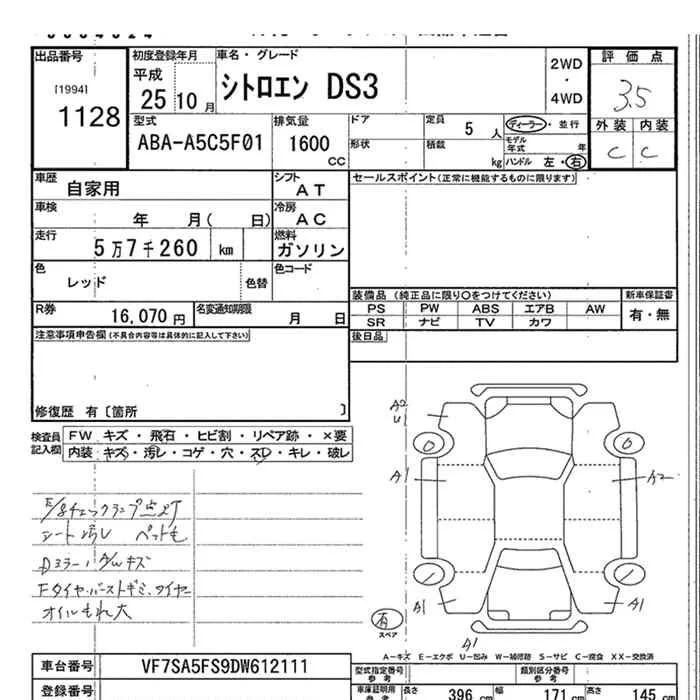 出品番号 初度登録年月 車名・グレード 2WD 評価点
[1994] 平成 シトロエン DS3 ・ 3.5
1128 25 10月 4WD
型式 排気量 ドア 定員 5人 ディーラー・並行 外装 内装
ABA-A5C5F01 1600 CC 形状 積載 kg モデル年式 年 C C
ハンドル 左・右
車歴 自家用 シフト AT セールスポイント(正常に機能するものに限ります)
車検 年 月( 日) 冷房 AC
走行 5万7千260 km 燃料 ガソリン
色 レッド 色替 色コード
装備品 (純正品に限り○をつけてください) 新車保証書
R券 16,070円 名変通知期限 月 日 PS PW ABS エアB AW 有・無
SR ナビ TV カワ
注意事項申告欄(不具合内容等は具体的に記入して下さい) 後日品
修復歴 有〔箇所 〕
検査員記入欄 FW キズ・飛石・ヒビ割・リペア跡・×要
内装 キズ・汚レ・コゲ・穴・スレ・キレ・破レ
A2
U1
A1 A2
E/gチェックランプ点灯
シート汚レ ペット毛
Dミラー、A/Wキズ
Fタイヤバーストギミ、タイヤ
オイルもれ大
A1 A1
有
スペア
A1
A-キズ E-エクボ U-凹み W-補修跡 S-サビ C-腐食 XX-交換済
車台番号 VF7SA5FS9DW612111 型式指定番号 参考 類別区分番号 参考
登録番号 車庫証明用 参考 長さ 396 cm 幅 171 cm 高さ 145 cm